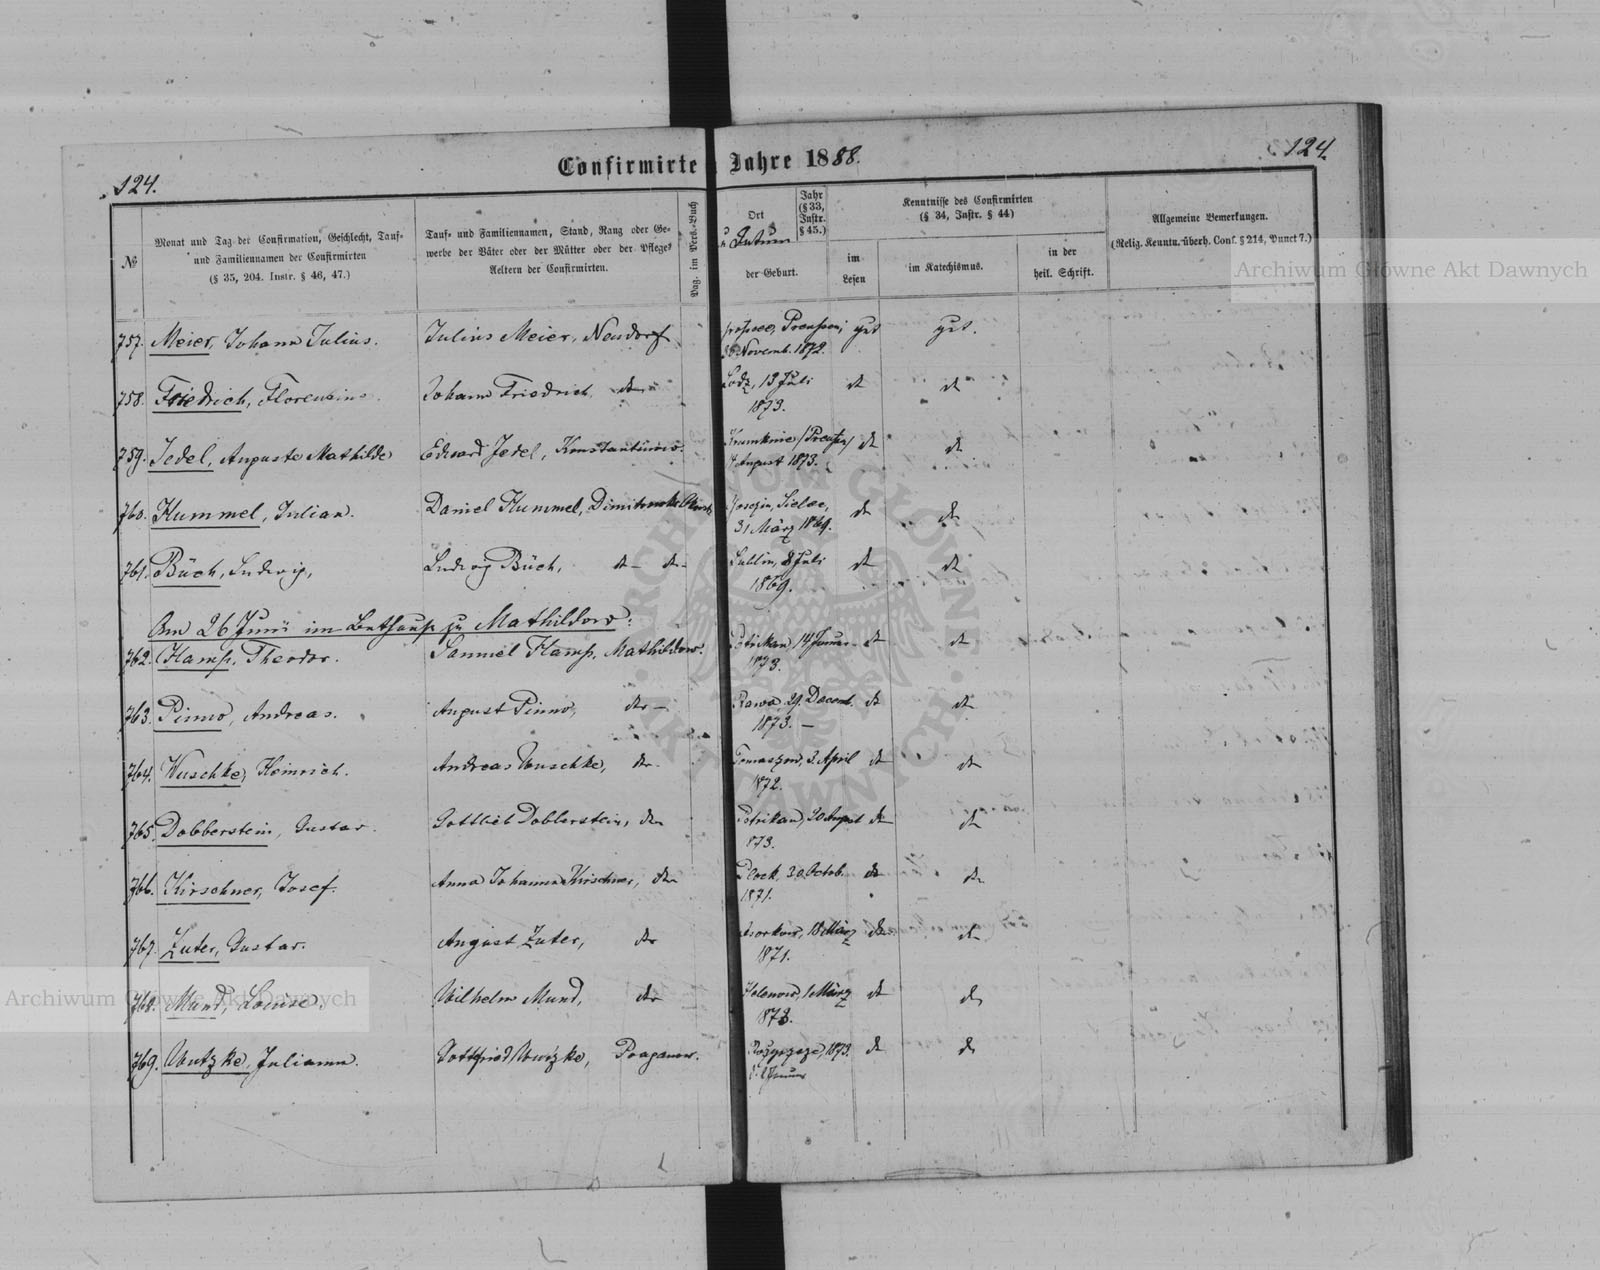 124.
Confirmirte
Jahre 1888.
124.
№
Monat und Tag der Confirmation, Geschlecht, Tauf-
und Familiennamen der Confirmirten
(§ 35, 204. Instr. § 46, 47.)
Tauf- und Familiennamen, Stand, Rang oder Ge-
werbe der Väter oder der Mütter oder der Pflege-
Aeltern der Confirmirten.
Pag. im Pers.-Buch
Ort
u Datum
der Geburt.
Jahr
(§ 33,
Instr.
§ 45.)
Kenntnisse des Confirmirten
(§ 34, Instr. § 44)
im
Lesen
im Katechismus.
in der
heil. Schrift.
Allgemeine Bemerkungen.
(Relig. Kenntn. überh. Conf. § 214, Punct 7.)
757. Meier, Johann Julius. Julius Meier, Neudorf Preussen, gut gut.
Novemb. 1872.
758. Friedrich, Florentine. Johann Friedrich, dto Lodz, 13 Juli dt dt
1873.
759. Jedel, Auguste Mathilde Eduard Jedel, Konstantinow. /Preussen/ dt dt
August 1873.
760. Hummel, Julian. Daniel Hummel, dt dt
31 März 1869.
761. Büch, Ludwig, Ludwig Büch, dt dt Lublin, 8 Juli dt dt
1869.
Am 26 Juni im Bethause zu Mathildow:
762. Hamp, Theodor. Samuel Hamp, Mathildow. Petrikau, 14 Januar dt dt
1873.
763. Pinno, Andreas. August Pinno, dto Rawa 29. Decemb. dt dt
1873.
764. Wuschke, Heinrich. Andreas Wuschke, dto Tomaszow, 3. April dt dt
1872.
765. Dobberstein, Gustav. Gottlieb Dobberstein, dto Petrikau, 20 August dt dt
1873.
766. Kirschner, Josef. Anna Johanna Kirschner, dto Plock, 30. Octob. dt dt
1871.
767. Zuter, Gustav. August Zuter, dto 18 März dt dt
1871.
768. Mund, Louise. Wilhelm Mund, dto Helenow, 1 März dt dt
1873.
769. Wutzke, Julianna. Gottfried Wutzke, 1873. dt dt
Januar
Archiwum Główne Akt Dawnych
Archiwum Główne Akt Dawnych
ARCHIWUM GŁÓWNE
AKT DAWNYCH